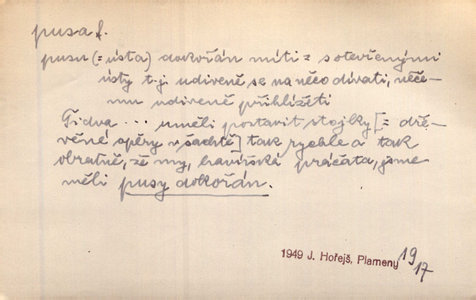 pusa f.
pusu (= ústa) dokořán míti = s otevřenými
ústy t.j. udiveně se na něco dívati, něče-
mu udiveně přihlížeti
Ti dva ... uměli postavit stojky [= dře-
věné spěry v šachtě] tak rychle a tak
obratně, že my, havířská práčata, jsme
měli pusy dokořán.
1949 J. Hořejš, Plameny 19
17